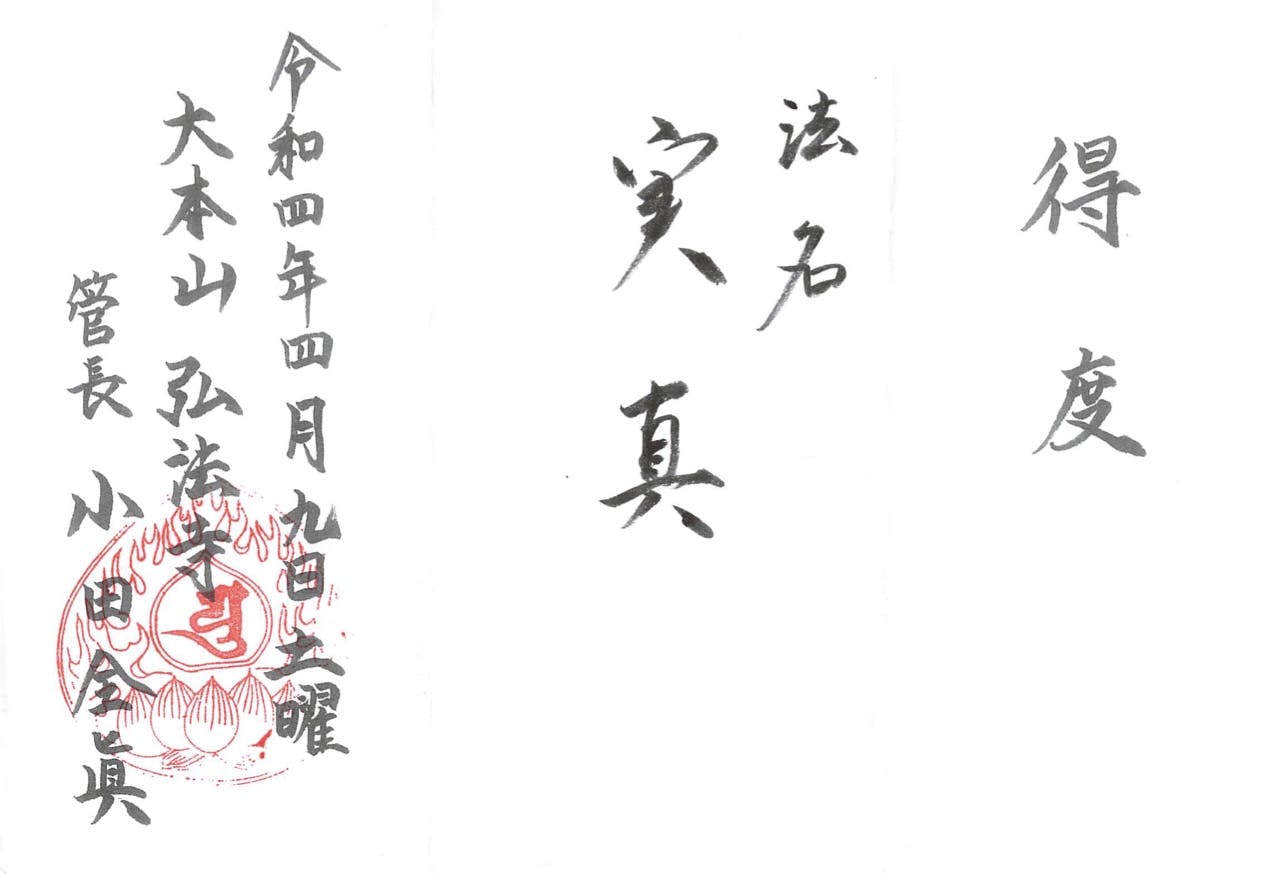 得度
法名
実真
令和四年四月九日土曜
大本山 弘法寺
管長 小田全眞